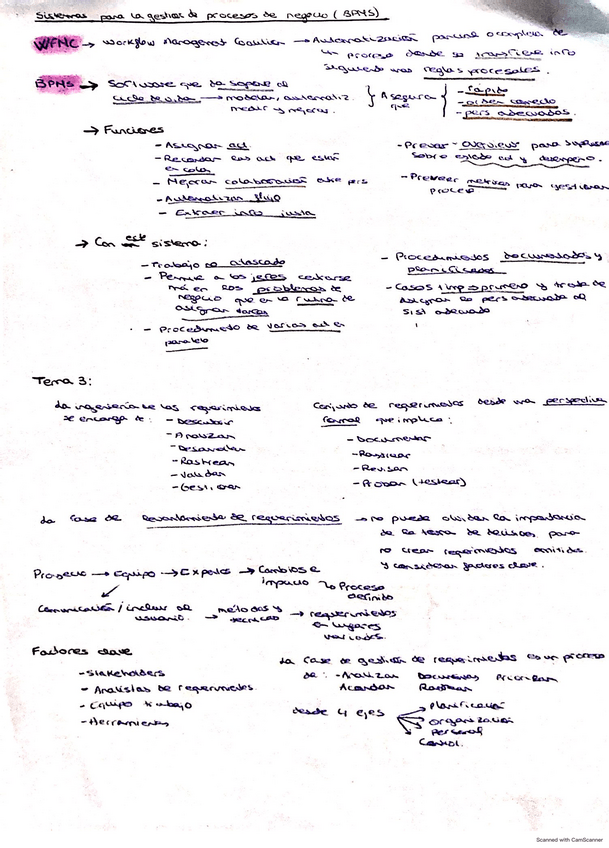 Sistemas para la gestion de procesos de negocio (BPMS)
WFMC → Workflow Management Coalition → Automatización parcial o completa de
un proceso donde se transfiere info
siguiendo unas reglas procesales.
BPMS → Software que da soporte al
ciclo de vida → modelar, automatiz.
medir y mejorar
} Asegura que {
- rápido
- orden correcto
- pers adecuadas.
→ Funciones
- Asignar act.
- Recordar las act que están
en cola
- Mejorar colaboración entre pers
- Automatizar flujo
- Extraer info justa
- Prever - overviews para
sobre estado act y desempeño.
- Proveer metricas para gestionar
proceso
→ Con este sistema:
- Trabajo no atascado
- Permite a los jefes centrarse
más en los problemas de
negocio que en la rutina de
asignar tareas
- Procedimiento de varias act en
paralelo
- Procedimientos documentados y
planificados
- Casos 1 impo primero y trata de
asignar la pers adecuada al
sist adecuado
Tema 3:
La ingeniería de los requerimientos
se encarga de:
- Descubrir
- Analizar
- Desarrollar
- Rastrear
- Validar
- Gestionar
Conjunto de requerimientos desde una perspectiva
formal que implica:
- Documentar
- Rastrear
- Revisar
- Probar (testear)
La fase de levantamiento de requerimientos → no puede olvidar la importancia
de la toma de decisiones para
no crear requerimientos omitidos
y considerar factores clave.
Proyecto → Equipo → Expertos → Cambios e
impacto ↘ Proceso
definido
Comunicación / incluir al
usuario. → métodos y
tecnicas → requerimientos
en lugares
variados.
Factores clave
- Stakeholders
- Analistas de requerimientos.
- Equipo trabajo
- Herramientas
La fase de gestión de requerimientos es un proceso
de: - Analizar Documentar Priorizar
Acordar Rastrear
desde 4 ejes
→ Planificación
→ organización
→ Personal
Control.
Scanned with CamScanner